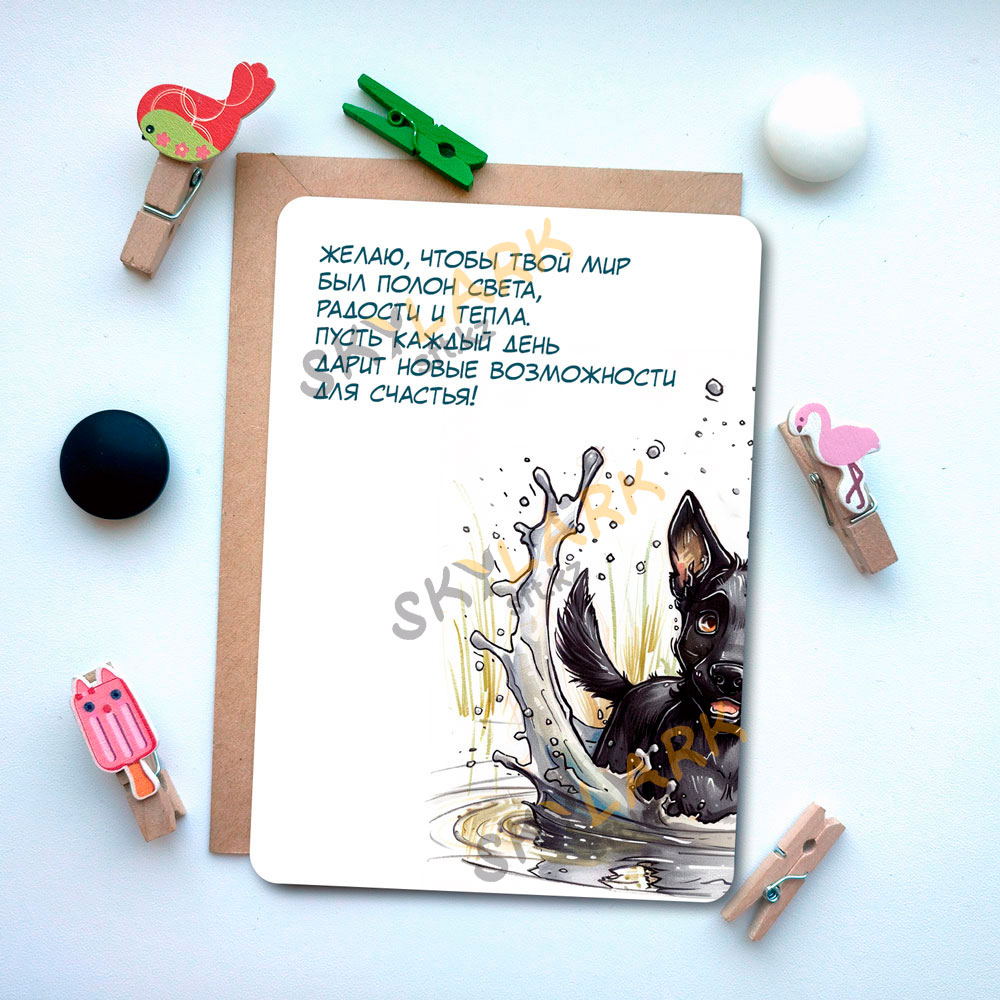 ЖЕЛАЮ, ЧТОБЫ ТВОЙ МИР
БЫЛ ПОЛОН СВЕТА,
РАДОСТИ И ТЕПЛА.
ПУСТЬ КАЖДЫЙ ДЕНЬ
ДАРИТ НОВЫЕ ВОЗМОЖНОСТИ
ДЛЯ СЧАСТЬЯ!
SKYLARK
sft.kz
SKYLARK
sft.kz
SKYLARK